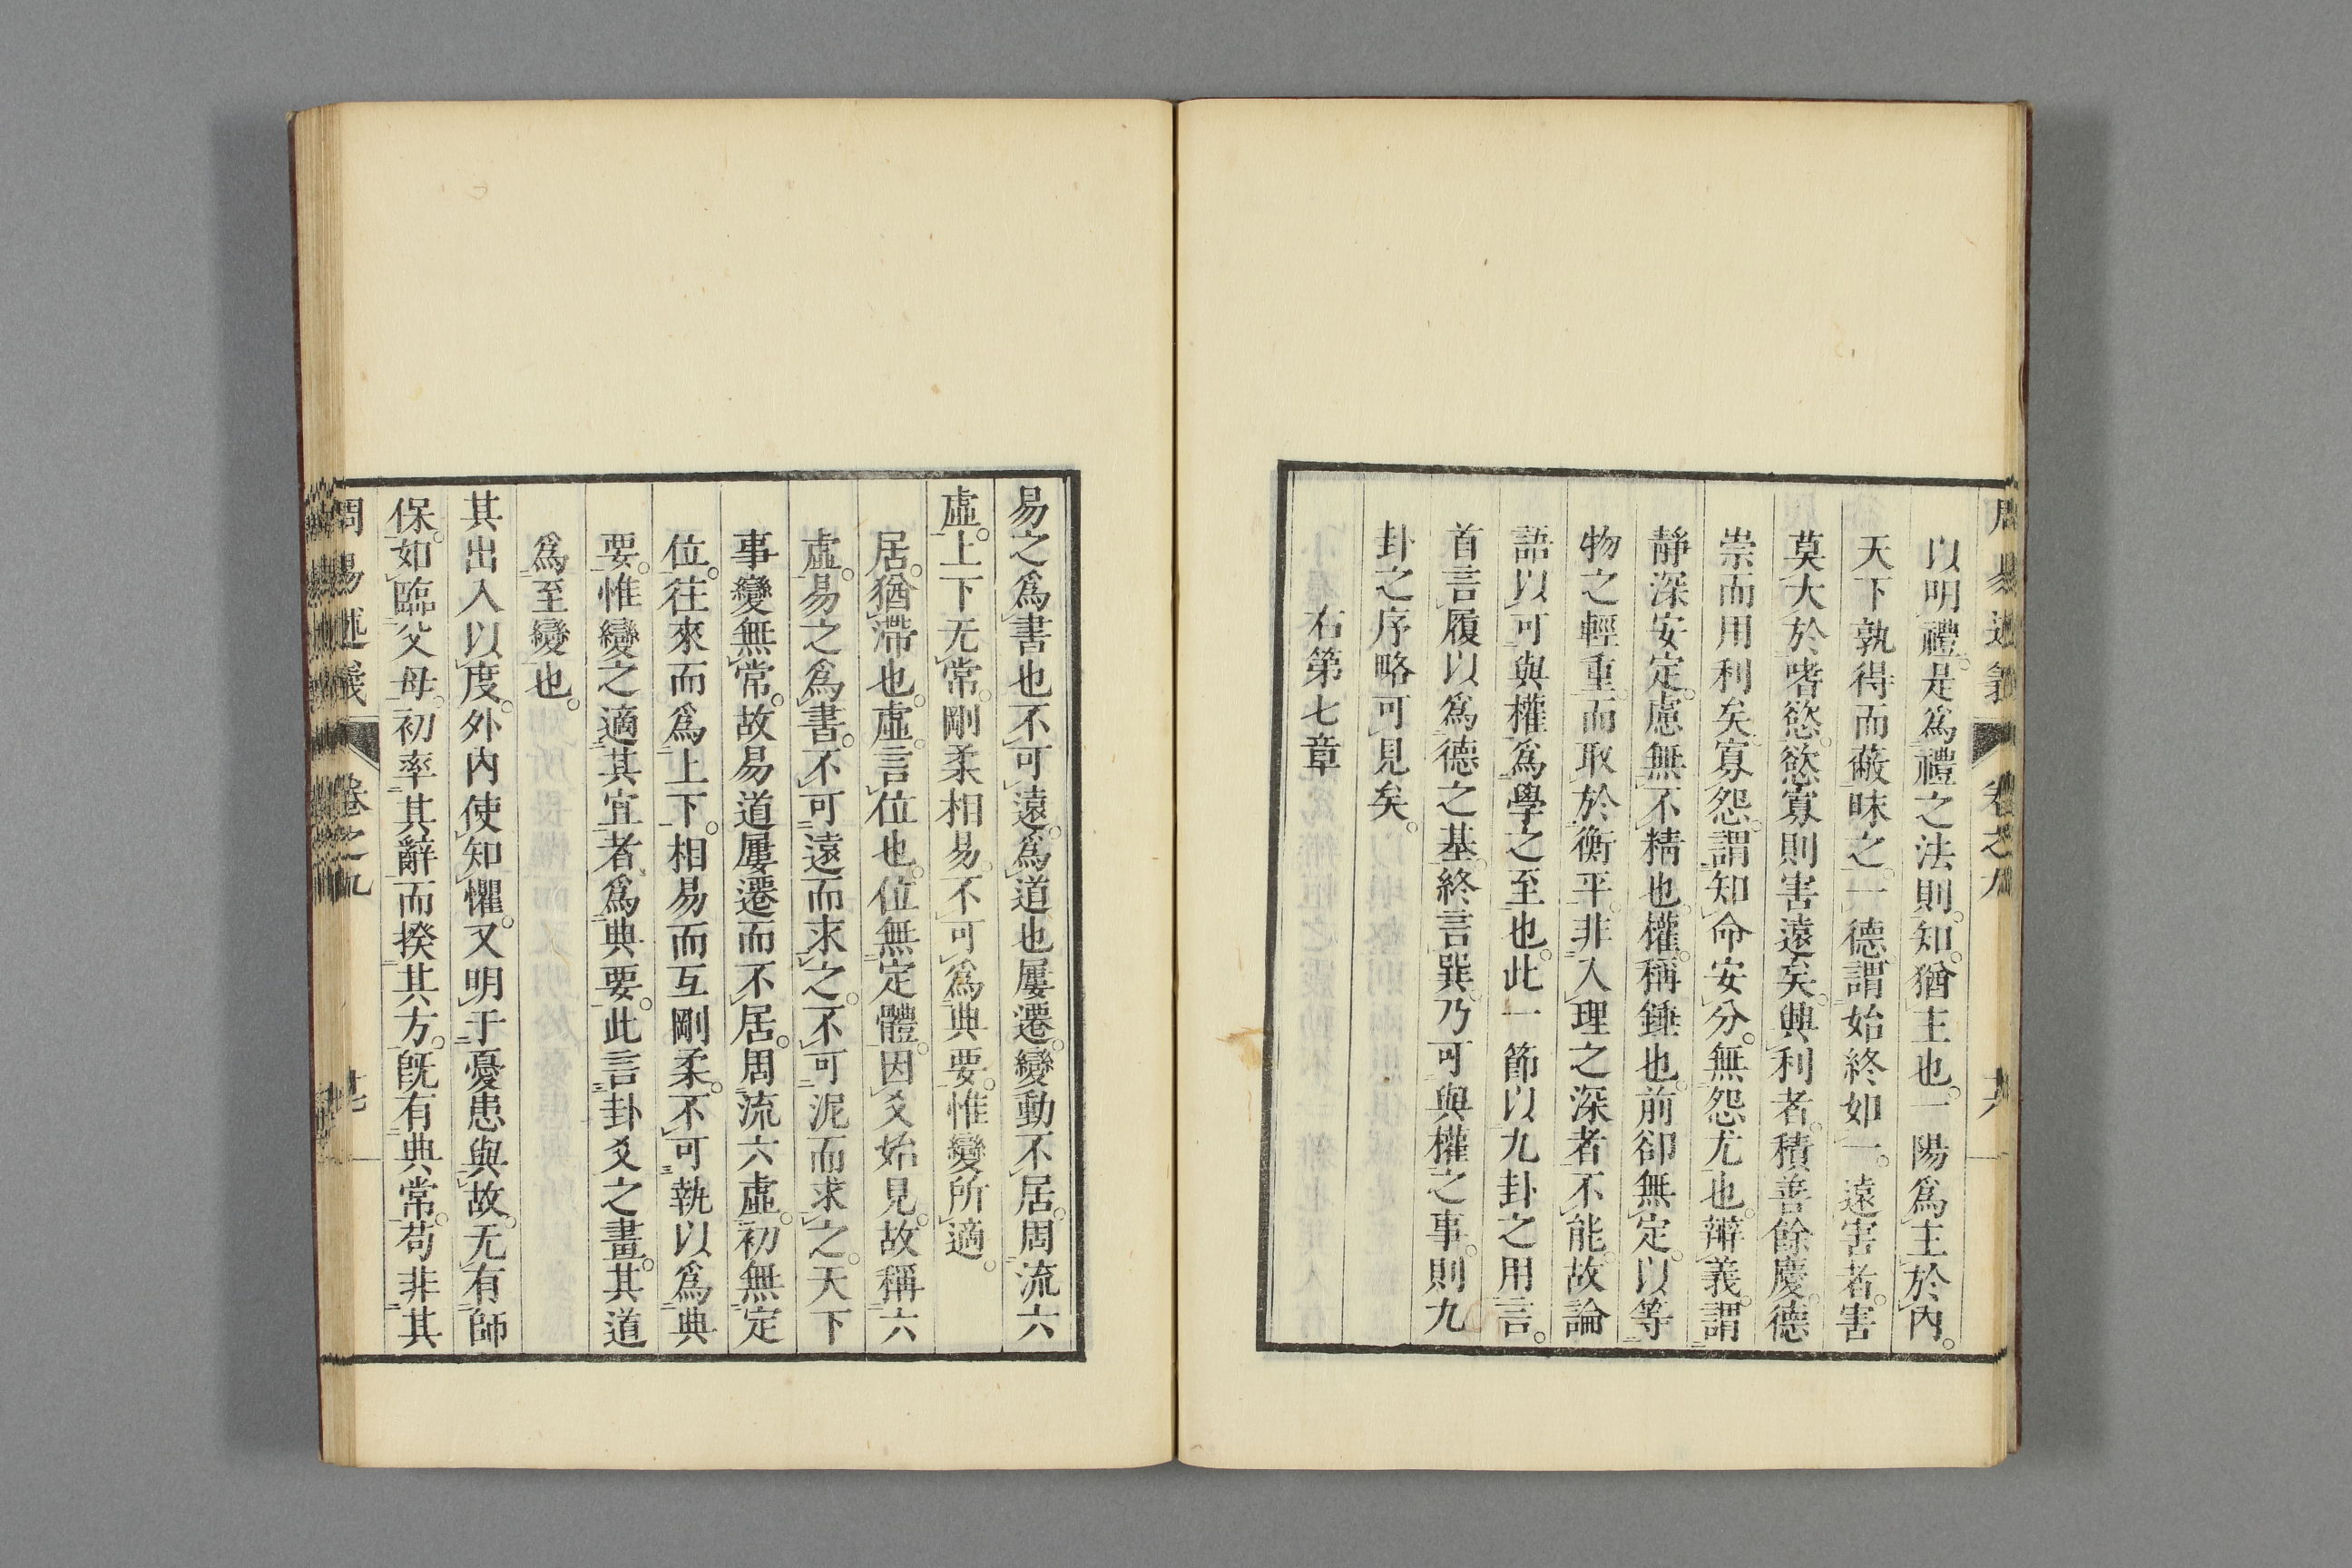 以明禮。是爲禮之法則。知。猶主也。一陽爲主於內。
天下孰得而蔽昧之。一德。謂始終如一。遠害者。害
莫大於嗜慾。慾寡則害遠矣。興利者。積善餘慶。德
崇而用利矣。寡怨。謂知命安分。無怨尤也。辯義。謂
靜深安定。慮無不精也。權。稱錘也。前卻無定。以等
物之輕重。而取於衡平。非入理之深者。不能。故論
語以可與權。爲學之至也。此一節以九卦之用言。
首言履以爲德之基。終言巽乃可與權之事。則九
卦之序略可見矣。
右第七章
易之爲書也不可遠。爲道也屢遷。變動不居。周流六
虛。上下无常。剛柔相易。不可爲典要。惟變所適。
居。猶滯也。虛。言位也。位無定體。因爻始見。故稱六
虛。易之爲書。不可遠而求之。不可泥而求之。天下
事變無常。故易道屢遷而不居。周流六虛。初無定
位。往來而爲上下。相易而互剛柔。不可執以爲典
要。惟變之適其宜者。爲典要。此言卦爻之畫。其道
爲至變也。
其出入以度。外內使知懼。又明于憂患與故。无有師
保。如臨父母。初率其辭而揆其方。旣有典常。苟非其
周易述義 卷之九 廿七